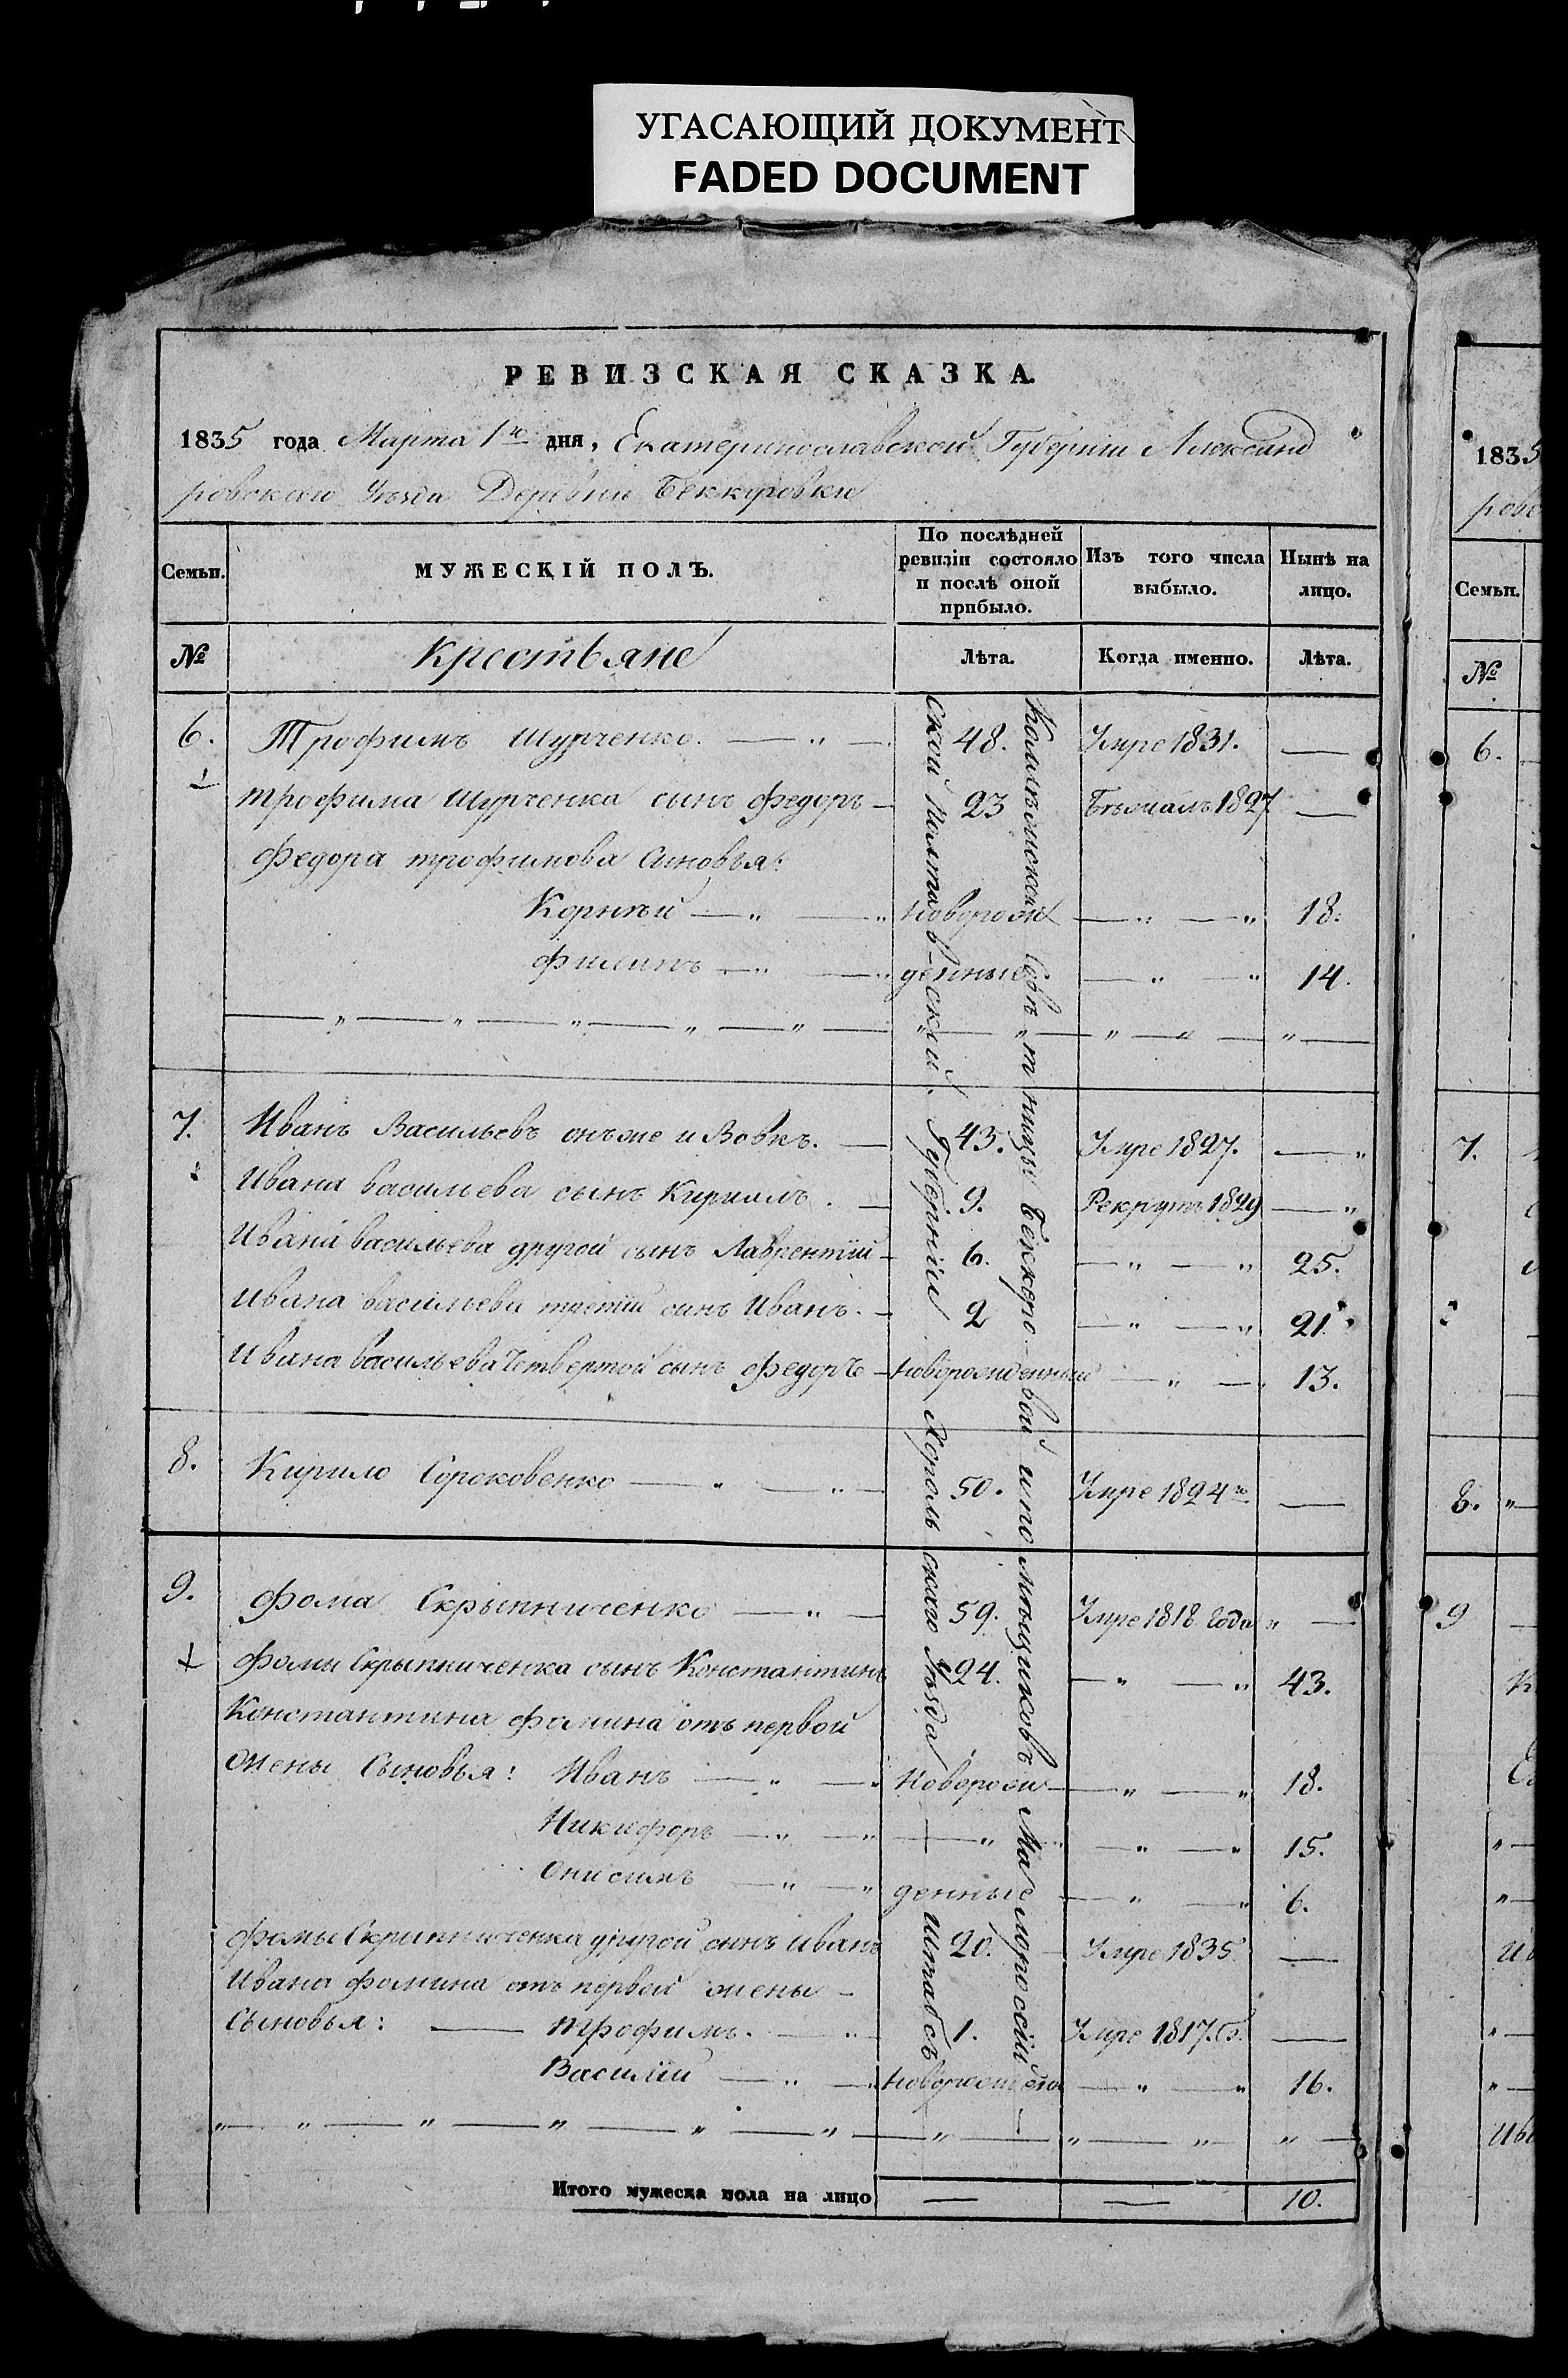 УГАСАЮЩИЙ ДОКУМЕНТ
FADED DOCUMENT
РЕВИЗСКАЯ СКАЗКА.
1835 года Марта 1го дня, Екатеринославской Губерніи Александ
ровского Уезда Деревни Беккеровки
Семьи. МУЖЕСКІЙ ПОЛЪ. По послѣдней ревизіи состояло и послѣ оной прибыло. Изъ того числа выбыло. Нынѣ на лицо.
№ Крестьяне Лѣта. Когда именно. Лѣта.
6. Трофимъ Шурченко. — „ — 48. Умре 1831. —
трофима Шурченка сынъ Федоръ — 23 Бѣжалъ 1827 —
Федора трофимова сыновья:
Корнѣй — „ — „ новорож — „ — „ 18.
Филипъ — „ — „ денные — „ — „ 14.
7. Иванъ Васильевъ онъ же и Вовкъ. — 43. Умре 1827. — „
Ивана васильева сынъ Кирилъ. — 9. Рекрутъ 1829 — „
Ивана васильева другой сынъ Лаврентій — 6. — „ — „ 25.
Ивана васильева третій сынъ Иванъ. — 2 — „ — „ 21.
Ивана васильева Четвертой сынъ Федоръ — новорожденный — „ — „ 13.
8. Кирило Сороковенко — „ — „ — 50. Умре 1824го —
9. Фома Скрыпниченко — „ — 59. Умре 1818 года „ —
Фомы Скрыпниченка сынъ Константинъ 24. — „ — „ 43.
Константина Фомина отъ первой
жены Сыновья: Иванъ — „ — „ Новорож — „ — „ 18.
Никифоръ — „ — „ — „ — „ — „ 15.
Онисимъ — „ — „ денные — „ — „ 6.
Фомы Скрыпниченка другой сынъ Иванъ 20. — Умре 1835. —
Ивана Фомина отъ первой жены —
Сыновья: — Трофимъ. — „ 1. Умре 1817. —
Василій — „ — „ — „ — „ 16.
Итого мужеска пола на лицо — — 10.
ской Полтавской Губерніи Хорольскаго Уезда Штабсъ
Беккеровой и помѣщиковъ
1835
рово
Семьи.
№
6.
7.
8.
9